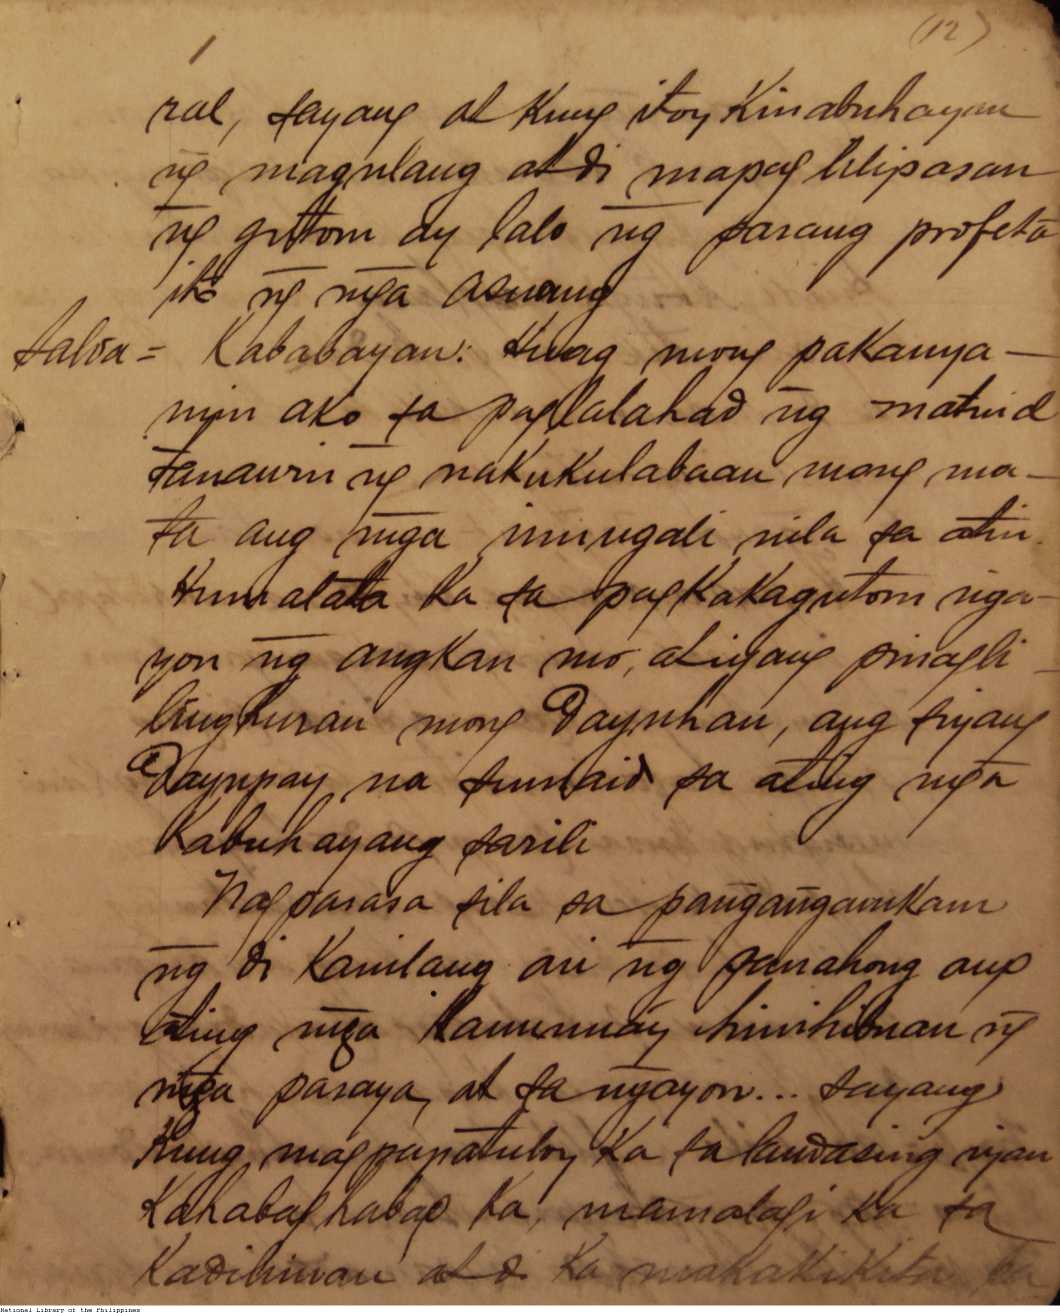 (12)
ral, sayang at kung itoy kinabuhayan
ng magulang at di mapag lilipasan
ng gutom ay lalo ng parang profeta
ito ng mga asuang
Salva = Kababayan: Huag mong pakanya-
nin ako sa paglalahad ng matuid
Tanawin ng nakukulabaan mong ma-
ta ang mga inuugali nila sa atin.
Humalata ka sa pagkakagutom nga-
yon ng angkan mo, at iyang pinagli-
lingkuran mong Dayuhan, ang siyang
Dayupay na sumaid sa ating mga
Kabuhayang sarili
Nagpasasa sila sa pangangamkam
ng di kanilang ari ng panahong ang
ating mga kanunuay hinihibuan ng
mga pasaya, at sa ngayon... sayang
Kung magpapatuloy ka sa landasing iyan
Kahabaghabag ka, mamalagi ka sa
Kadiliman at di ka makakikita
National Library of the Philippines